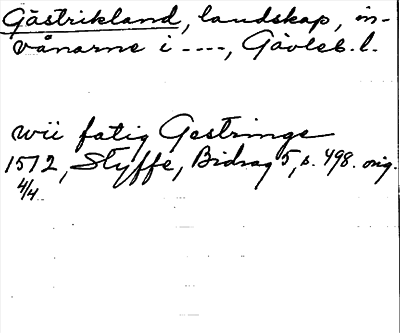 Gästrikland, landskap, in-
vånarne i ----, Gävleb. l.
wii fatig Gestringe
1512, Styffe, Bidrag 5, s. 498. orig.
4/4